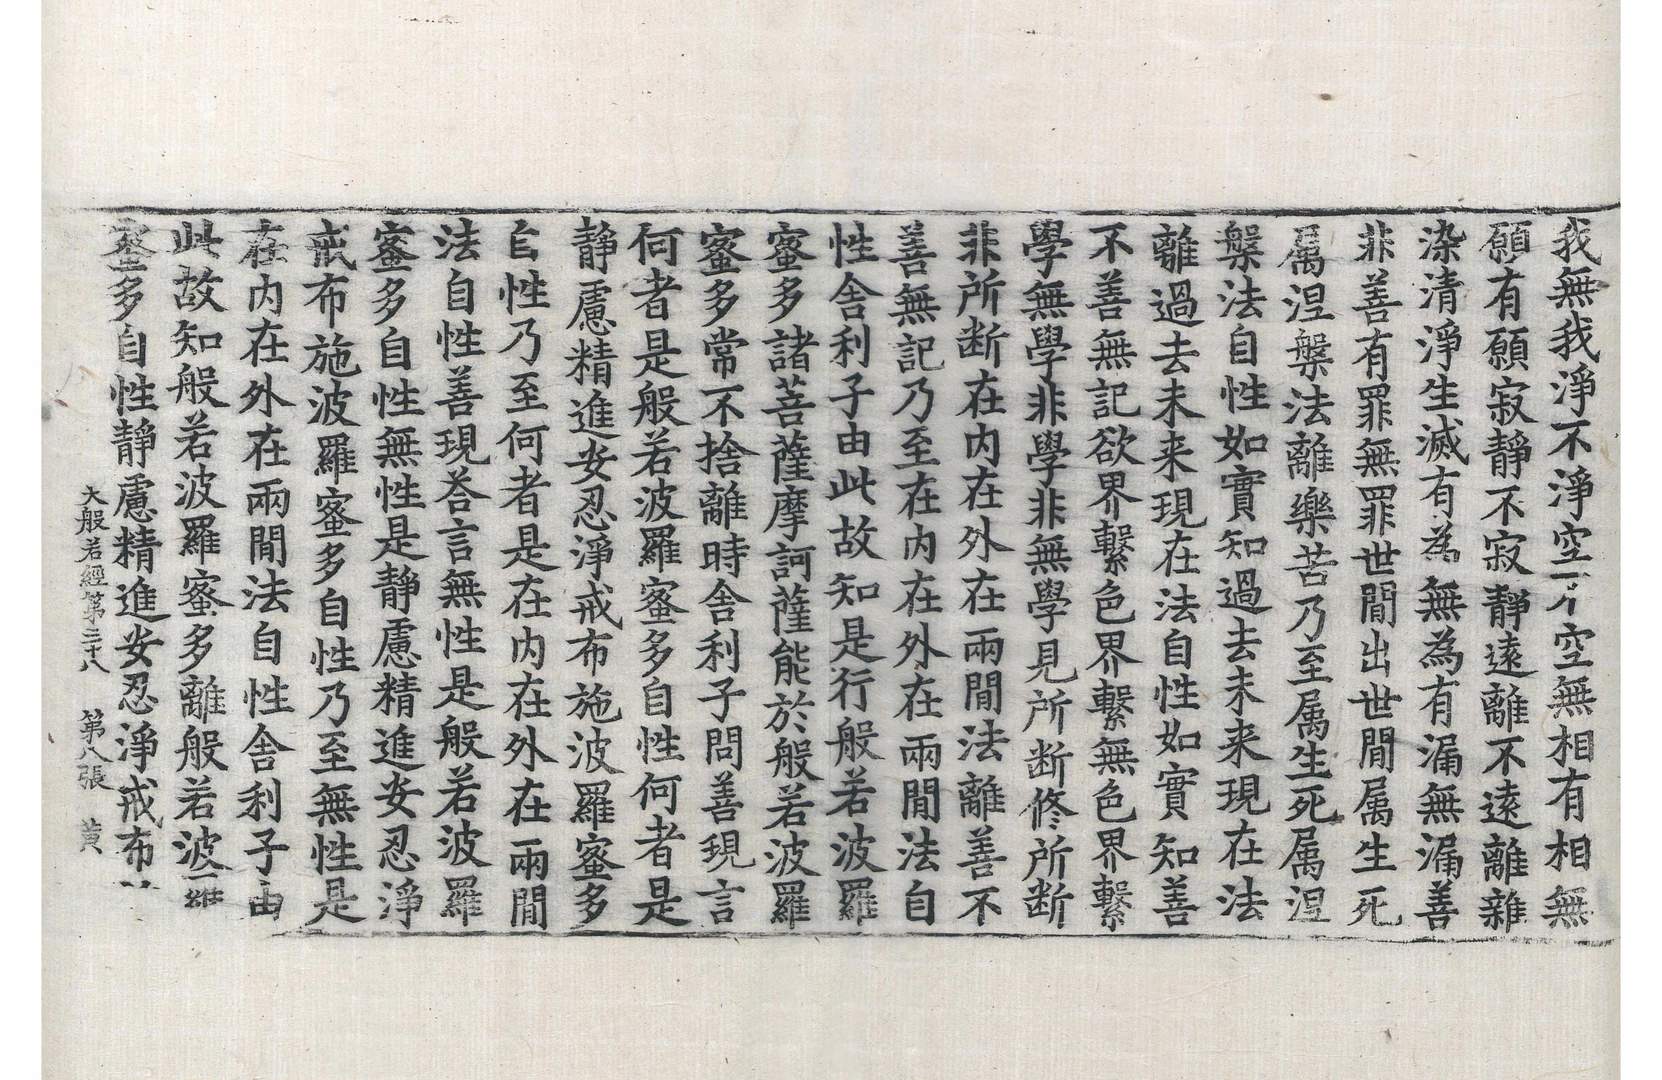 我無我淨不淨空不空無相有相無
願有願寂靜不寂靜遠離不遠離雜
染清淨生滅有為無為有漏無漏善
非善有罪無罪世間出世間属生死
属涅槃法離樂苦乃至属生死属涅
槃法自性如實知過去未来現在法
離過去未来現在法自性如實知善
不善無記欲界繫色界繫無色界繫
學無學非學非無學見所断修所断
非所断在内在外在兩間法離善不
善無記乃至在内在外在兩間法自
性舍利子由此故知是行般若波羅
蜜多諸菩薩摩訶薩能於般若波羅
蜜多常不捨離時舍利子問善現言
何者是般若波羅蜜多自性何者是
靜慮精進安忍淨戒布施波羅蜜多
自性乃至何者是在内在外在兩間
法自性善現荅言無性是般若波羅
蜜多自性無性是靜慮精進安忍淨
戒布施波羅蜜多自性乃至無性是
在内在外在兩間法自性舍利子由
此故知般若波羅蜜多離般若波羅
蜜多自性靜慮精進安忍淨戒布
大般若經第三十八 第八張 黄